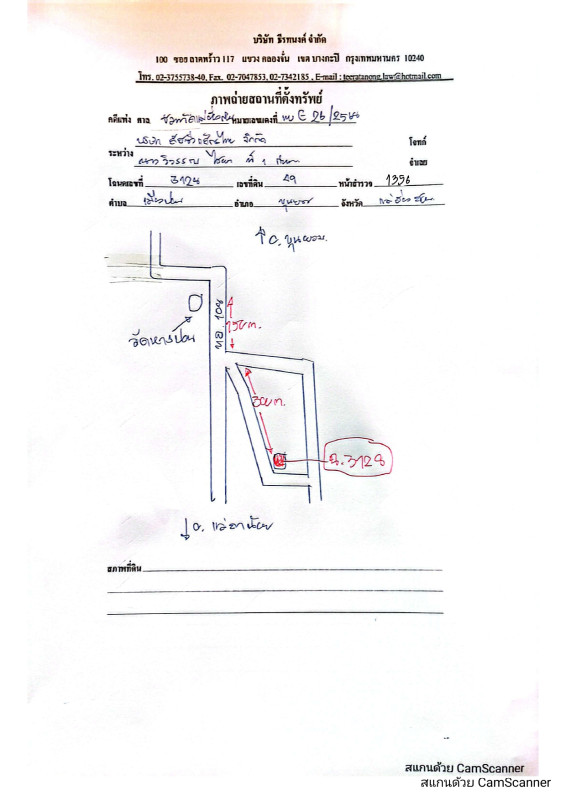 บริษัท ธีรทนงค์ จำกัด
100 ซอย ลาดพร้าว 117 แขวง คลองจั่น เขต บางกะปิ กรุงเทพมหานคร 10240
โทร. 02-3755738-40, Fax. 02-7047853, 02-7342185 , E-mail : teeratanong.law@hotmail.com
ภาพถ่ายสถานที่ตั้งทรัพย์
คดีแพ่ง ศาล หมายเลขแดงที่ ผบ E 26/2560
บริษัท จำกัด โจทก์
ระหว่าง
ที่ 1 จำเลย
โฉนดเลขที่ 3128 เลขที่ดิน 49 หน้าสำรวจ 1356
ตำบล เมืองปอน อำเภอ ขุนยวม จังหวัด แม่ฮ่องสอน
อ. ขุนยวม
ทล. 108
150 ม.
วัดหางปอน
300 ม.
ฉ. 3128
อ. แม่ลาน้อย
สภาพที่ดิน
สแกนด้วย CamScanner
สแกนด้วย CamScanner